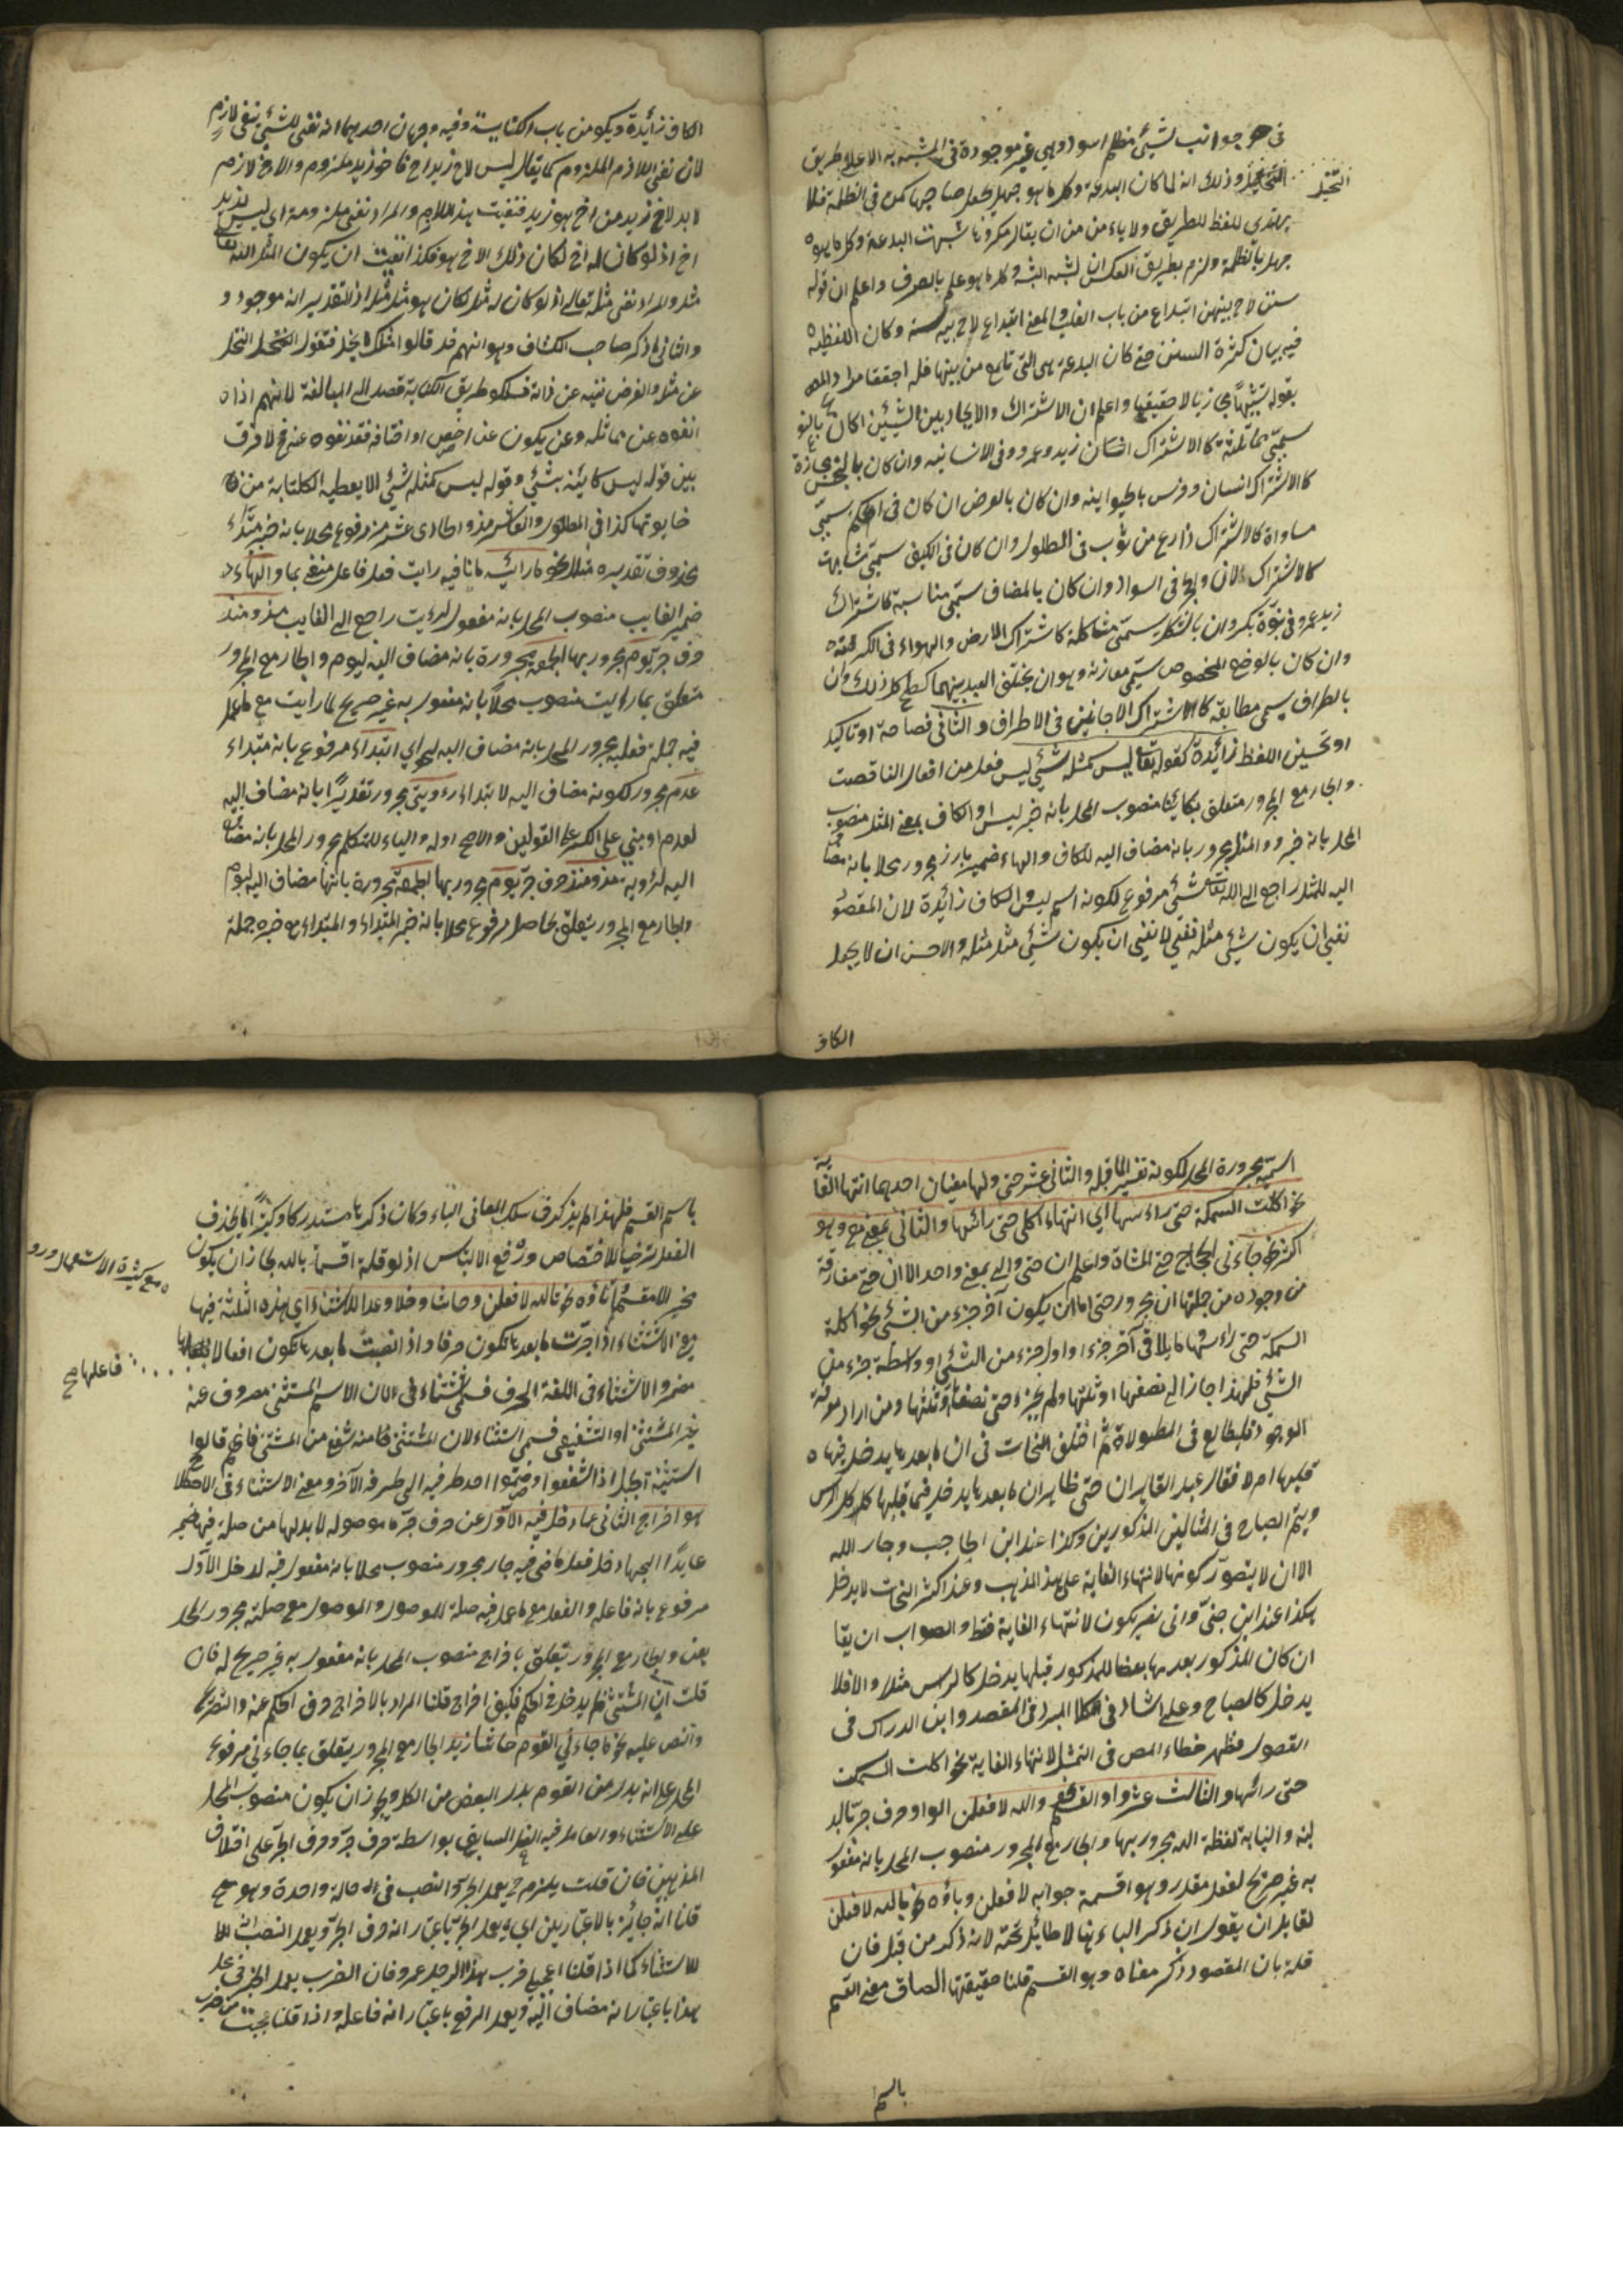 في جوانب شيئ مظلم اسود وهي غير موجودة في المشبه به الا على طريق
التخييل وذلك انه لما كان البدعة وكل ما هو جهل يجعل صاحبها كمن في الظلمة فلا
التخيل
يهتدي للطريق ولا يأمن من ان ينال مكروها شبهت البدعة وكل ما هو
جهل بالظلمة ولزم بطريق العكس ان تشبه السنة وكل ما هو علم بالصرف واعلم ان قوله
سنن لاح بينهن ابتداع من باب القلب والمعنى ابتداع لاح بين سنن وكان اللفظية
فيه بيان كثرة السنن حتى كان البدعة هي التي تلمع من بينها
بقوله تشبيها مجازيا لا حقيقيا واعلم ان الاشتراك والاتحاد بين الشيئين ان كان بالنوع
سمي مماثلة كالاشتراك انسان زيد وعمرو في الانسانية وان كان بالجنس مجانسة
كالاشتراك انسان وفرس بالحيوانية وان كان بالعرض ان كان في الكم سمي
مساواة كالاشتراك ذراع من ثوب في الطول وان كان في الكيف سمي مشابهة
كالاشتراك في السواد وان كان بالمضاف سمي مناسبة كاشتراك
زيد عمرو في بنوة بكر وان بالشكل يسمى مشاكلة كاشتراك الارض والهواء في الكرية
وان كان بالوضع المخصوص سمي موازنة وهو ان يختلف البعد بينهما كسطح كل ذلك وان
بالاطراف يسمى مطابقة كالاشتراك الاجانين في الاطراف والثاني فصاحة او تأكيد
او تحسين اللفظ زائدة كقوله تعالى ليس كمثله شيئ ليس فعل من افعال الناقصة
والجار مع المجرور متعلق بكائنا منصوب المحل بانه خبر ليس او الكاف بمعنى المثل منصوب
المحل بانه خبره والمثل مجرور بانه مضاف اليه للكاف والهاء ضمير بارز مجرور محلا بانه مضاف
اليه للمثل راجع الى الله تعالى شيئ مرفوع لكونه اسم ليس والكاف زائدة لان المقصود
نفي ان يكون شيئ مثله تعالى لا نفي ان يكون شيئ مثل مثله والاحسن ان لا يجعل
الكاف
الكاف زائدة ويكون من باب الكناية وفيه وجهان احدهما انه نفي للشيئ بنفي لازمه
لان نفي اللازم الملزوم كما يقال ليس لاخ زيد اخ فاخو زيد ملزوم والاخ لازم
لا بد لاخ زيد من اخ هو زيد فنفيت هذا اللازم والمراد نفي ملزومه اي ليس لزيد
اخ اذ لو كان له اخ لكان ذلك الاخ هو فكذا نفيت ان يكون المثل الله تعالى
مثل والمراد نفي مثله تعالى اذ لو كان له مثل لكان هو مثل مثله اذ التقدير انه موجود و
والثاني ما ذكر صاحب الكشاف وهو انهم قد قالوا مثلك لا يبخل فنفوا البخل
عن مثله والغرض نفيه عن ذاته فسلكوا طريق الكناية قصدا الى المبالغة لانهم اذا
نفوه عن مماثله وعن يكون عن اخص اوصافه فقد نفوه عنه فح لا فرق
بين قوله ليس كالله شيئ وقوله ليس كمثله شيئ الا ما يعطيه الكناية من
كذا في المطول والعاشر مذ والحادى عشر منذ مرفوع محلا بانه خبر مبتداء
محذوف تقديره مثاله نحو ما رايته ما نافيه رايت فعل فاعل منفي بما والهاء
ضمير الغايب منصوب المحل بانه مفعول لرايت راجع الى الغايب مذ ومنذ
حرف جر يوم مجرور بها الجمعة مجرورة بانه مضاف اليه ليوم والجار مع المجرور
متعلق بما رايت منصوب محلا بانه مفعول به غير صريح لما رايت مع ما عمل
فيه جملة فعلية مجرور المحل بانه مضاف اليه لنحو اي ابتداء مرفوع بانه مبتداء
عدم مجرور لكونه مضاف اليه لابتداء رؤيتي مجرور تقديرا بانه مضاف اليه
لعدم او مبني على الكسر على القولين والاصح اوله والياء للمتكلم مجرور المحل بانه مضاف
اليه لرؤية مذ ومنذ حرف جر يوم مجرور بها الجمعة مجرورة بانها مضاف اليه ليوم
والجار مع المجرور يتعلق بحاصل مرفوع محلا بانه خبر المبتداء والمبتداء مع خبره جملة
اسمية مجرورة المحل لكونه تفسيرا لما قبله والثاني عشر حتى ولها معنيان احدهما انتهاء الغاية
نحو اكلت السمكة حتى رأسها اي انتهاء اكلي حتى رأسها والثاني بمعنى مع وهو
اكثر نحو جاءني الحجاج حتى المشاة واعلم ان حتى والى بمعنى واحد الا ان حتى مفارقة
من وجوه من جملتها ان مجرور حتى اما ان يكون آخر جزء من الشيئ نحو اكلت
السمكة حتى رأسها او ما يلاقي آخر جزء او اول جزء من الشيئ او واسطة جزء من
الشيئ فلهذا جاز الى نصفها او ثلثها ولم يجز حتى نصفها وثلثها ومن اراد معرفة
الوجوه فليطالع في المطولات ثم اختلف النحات في ان ما بعدها يدخل فيما
قبلها ام لا فقال عبد القاهر ان حتى ظاهر ان ما بعدها يدخل فيما قبلها اكل الرأس
وينم الصباح في المثالين المذكورين وكذا عند ابن الحاجب وجار الله
الا ان لا يتصور كونها لانتهاء الغاية على هذا المذهب وعند اكثر النحات لا يدخل
هكذا عند ابن جني واني بغير يكون لانتهاء الغاية فقط والصواب ان يقا
ان كان المذكور بعدها بعضا للمذكور قبلها يدخل كالرأس مثلا والا فلا
يدخل كالصباح وعلى اشار في المبرد في المقصد وابن الدراك في
الفصول فظهر خطاء المص في التمثيل لانتهاء الغاية نحو اكلت السمكة
حتى رأسها والثالث عشر واو القسم نحو والله لافعلن الواو حرف جر
لفظة الله مجرور بها والجار مع المجرور منصوب المحل بانه مفعول
به غير صريح لفعل مقدر وهو اقسمت جوابه لافعلن وباؤه نحو بالله لافعلن
لقايل ان يقول ان ذكر الباء ههنا لا طائل تحته لانه ذكر من قبل فان
قلت بان المقصود ذكر معناه وهو القسم قلنا حقيقتها الصاق معنى القسم
باسم
باسم القسم فلهذا لم يذكر في سلك المعاني الباء وكان ذكرها مستدركا وكثيرا ما يحذف
الفعل ترخيا للاختصاص ورفع الالتباس اذ لو قلت اقسمت بالله لجاز ان يكون
مع كثرة الاستعمال ورود
مخبرا لا مقسما وتاؤه نحو تالله لافعلن وحاشا وخلا وعدا للاستثناء اي هذه الثلثة فيها
معنى الاستثناء اذا جرت ما بعدها تكون حرفا واذا نصبت ما بعدها تكون افعالا فاعلها
فاعلها صح
مضمر والاستثناء في اللغة الصرف فسمي استثناء لان الاسم المستثنى مصروف عنه
غير المستثنى او التشفيع فسمي استثناء لان المستثنى كانه شفع من المستثنى فانهم قالوا
استثنيت الحبل اذا اشفعوا وضموا احد طرفيه الى طرفه الآخر ومعنى الاستثناء في الاصطلاح
هو اخراج الثاني عما دخل فيه الاول عن حرف جر ما موصوله لا بد لها من صلة فيها ضمير
عايدا اليها دخل فعل ماضي فيه جار مجرور منصوب محلا بانه مفعول فيه لدخل الاول
مرفوع بانه فاعله والفعل مع ما عمل فيه صلة للموصول والموصول مع صلته مجرور المحل
بعن والجار مع المجرور يتعلق باخراج منصوب المحل بانه مفعول به غير صريح له فان
قلت ان المستثنى لم يدخل في الحكم فكيف اخراج قلنا المراد بالاخراج حرف الحكم عنه والنصر
والنص عليه نحو ما جاءني القوم حاشا زيد الجار مع المجرور يتعلق بما جاءني مرفوع
المحل على انه بدل من القوم بدل البعض من الكل ويجوز ان يكون منصوب المحل
على الاستثناء والعامل فيه الفعل السابق بواسطة حرف جر وحرف الجر على اختلاف
المذهبين فان قلت يلزم ح يعمل الجر والنصب في حالة واحدة وهو مح
قلنا انه جائز بالاعتبارين اي يعمل الجر باعتبار انه حرف الجر ويعمل النصب
للاستثناء كما اذا قلنا اعجبني ضرب هذا الرجل عمرو فان الضرب يعمل الجر في محل
هذا باعتبار انه مضاف اليه ويعمل الرفع باعتبار انه فاعله واذا قلنا عجبت من ضرب